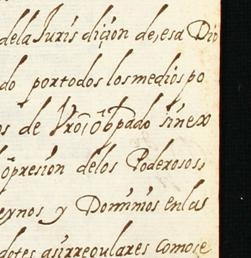 dela Juris diçion de, esa Dio
do por todos los medios po
os de Vro͂ Obp̃ado sin ex
opresion delos Poderosos,
eynos y Dominios en las
dotes asi rregulares como se